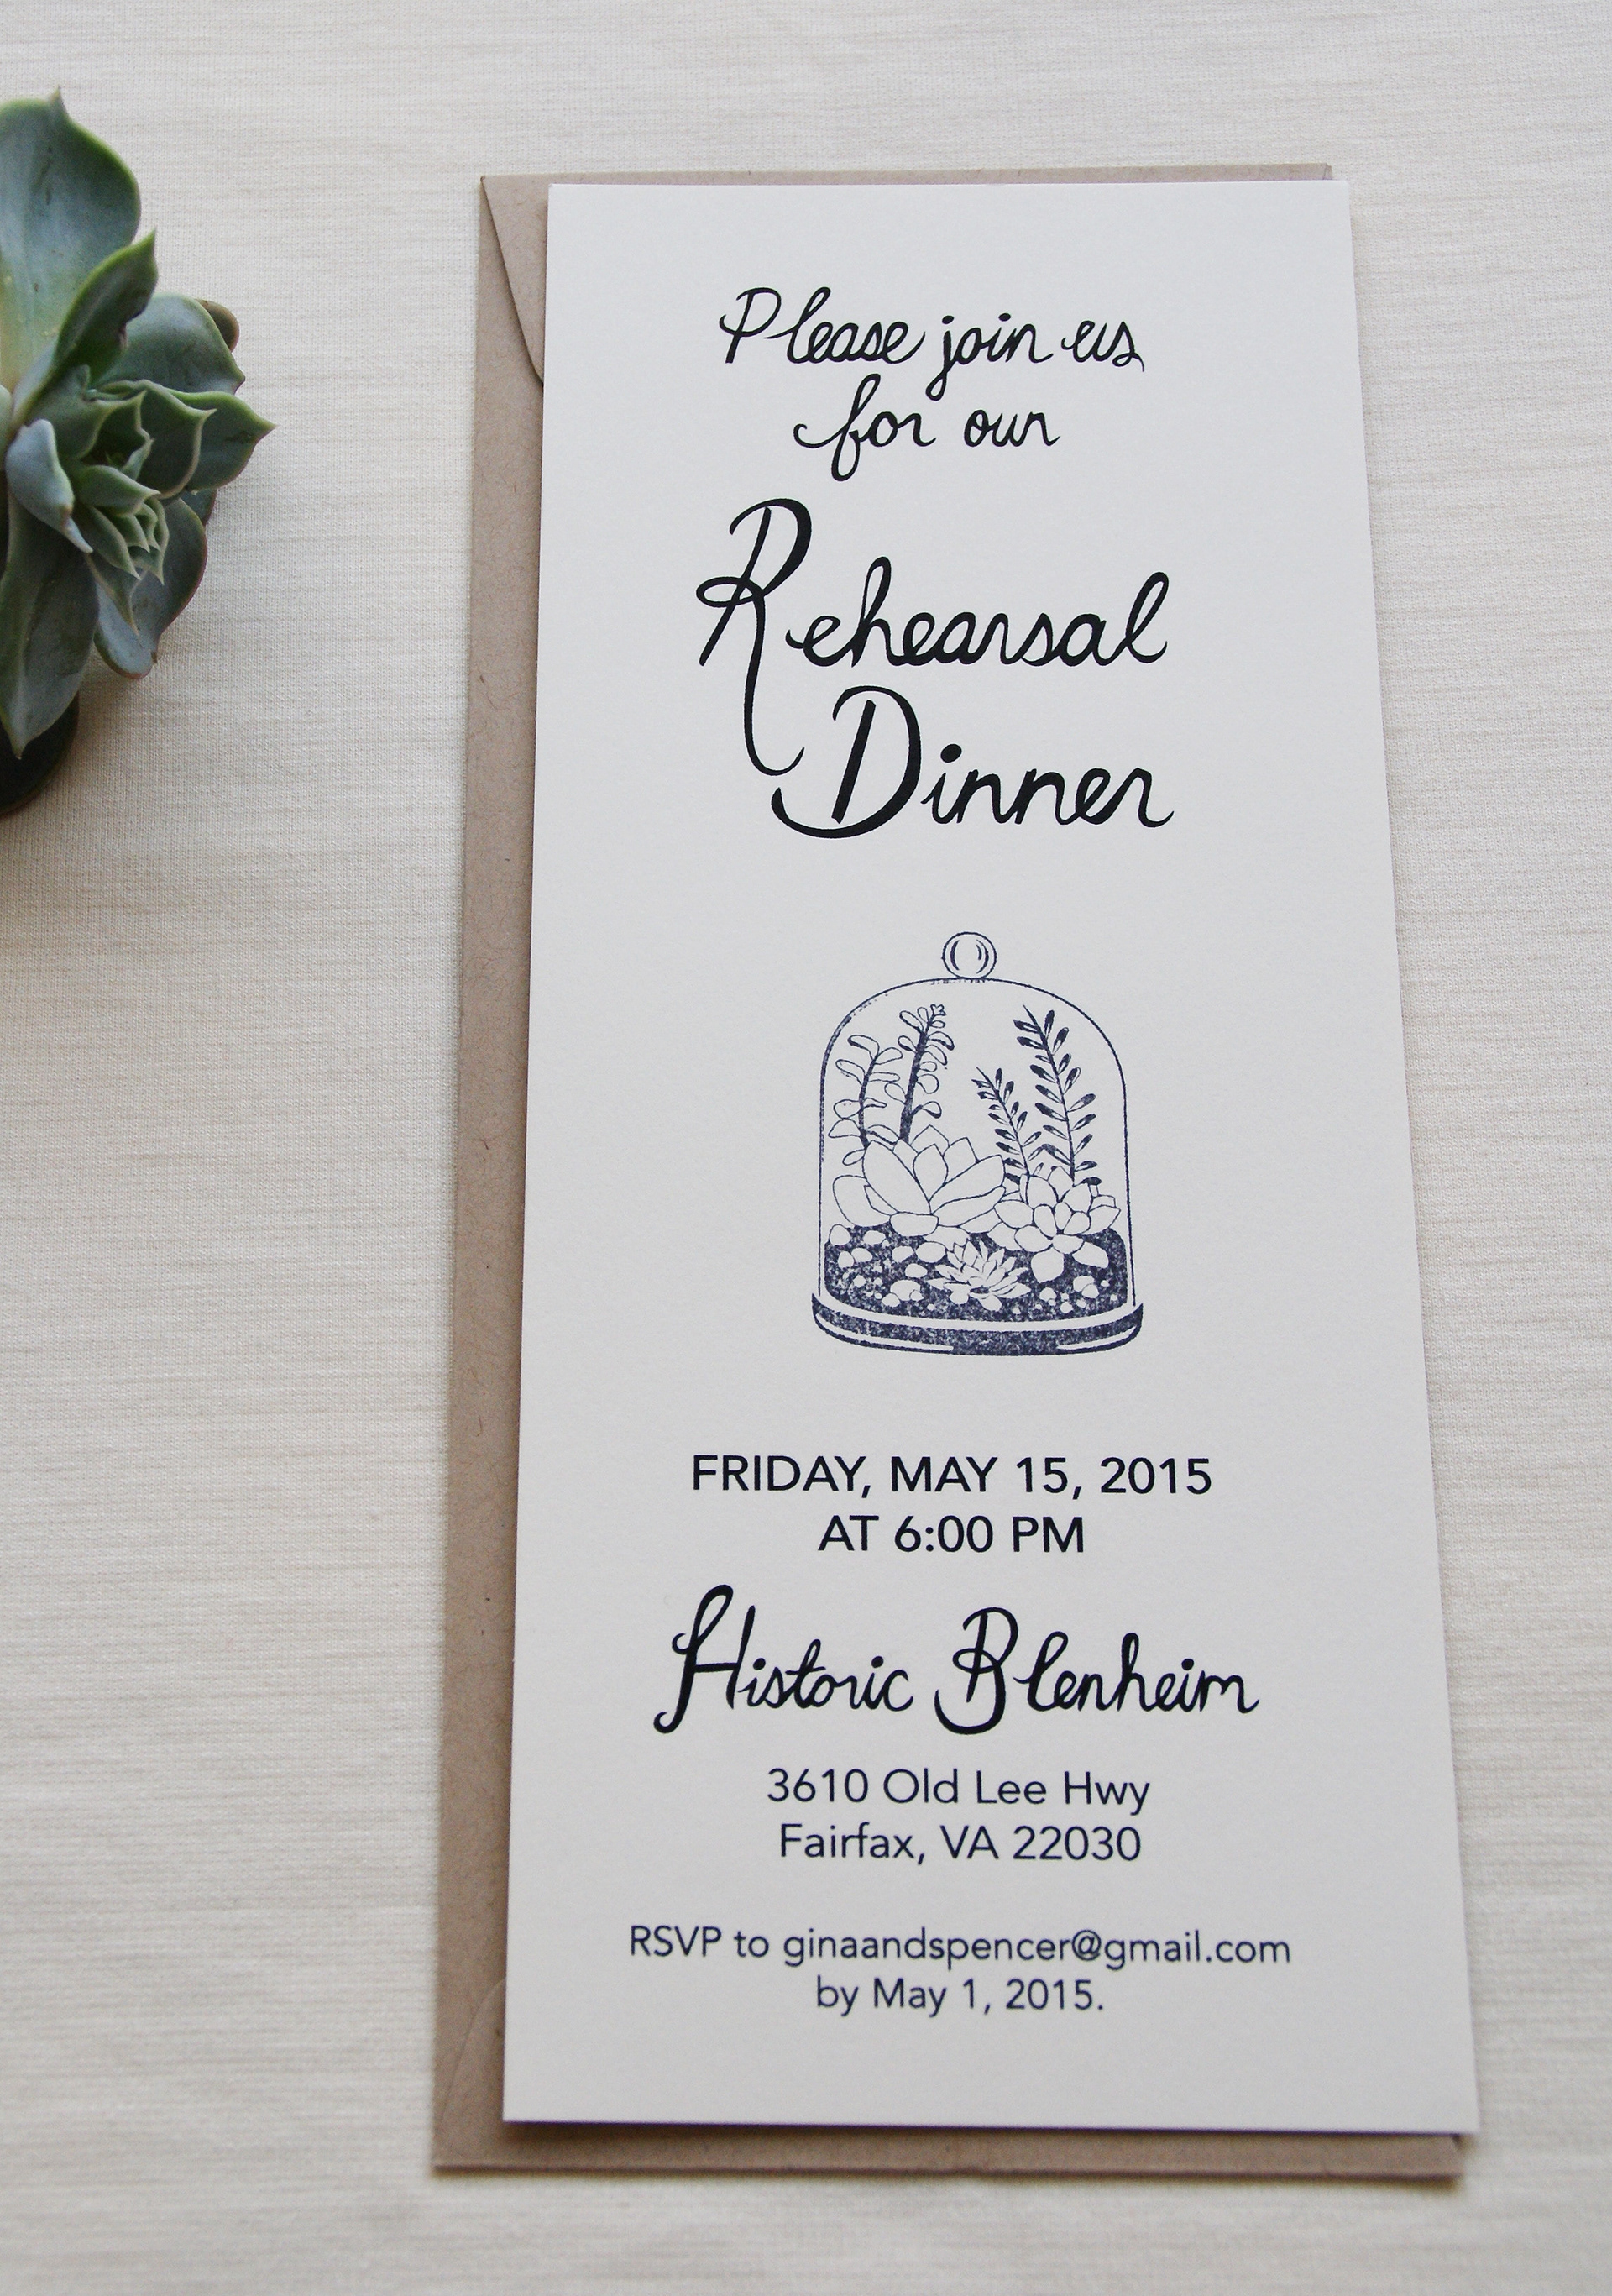 Please join us
for our
Rehearsal
Dinner
FRIDAY, MAY 15, 2015
AT 6:00 PM
Historic Blenheim
3610 Old Lee Hwy
Fairfax, VA 22030
RSVP to ginaandspencer@gmail.com
by May 1, 2015.